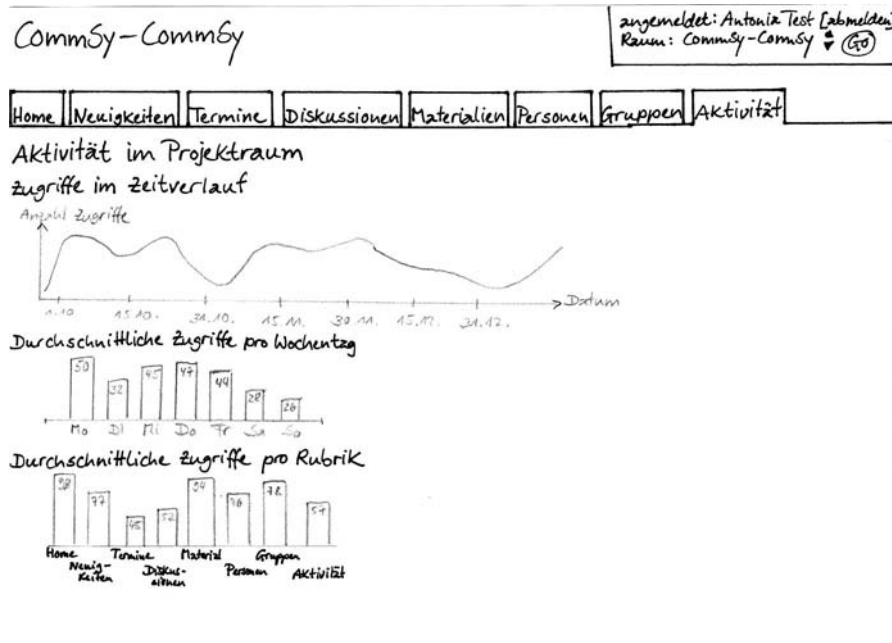 CommSy-CommSy
angemeldet: Antonia Test [abmelden]
Raum: CommSy-CommSy GO
Home Neuigkeiten Termine Diskussionen Materialien Personen Gruppen Aktivität
Aktivität im Projektraum
Zugriffe im Zeitverlauf
Anzahl Zugriffe
Datum
1.10 15.10. 31.10. 15.11. 30.11. 15.12. 31.12.
Durchschnittliche Zugriffe pro Wochentag
50 32 45 47 44 28 26
Mo Di Mi Do Fr Sa So
Durchschnittliche Zugriffe pro Rubrik
98 77 45 52 94 76 78 57
Home Termine Material Gruppen
Neuig- Diskus- Personen Aktivität
keiten